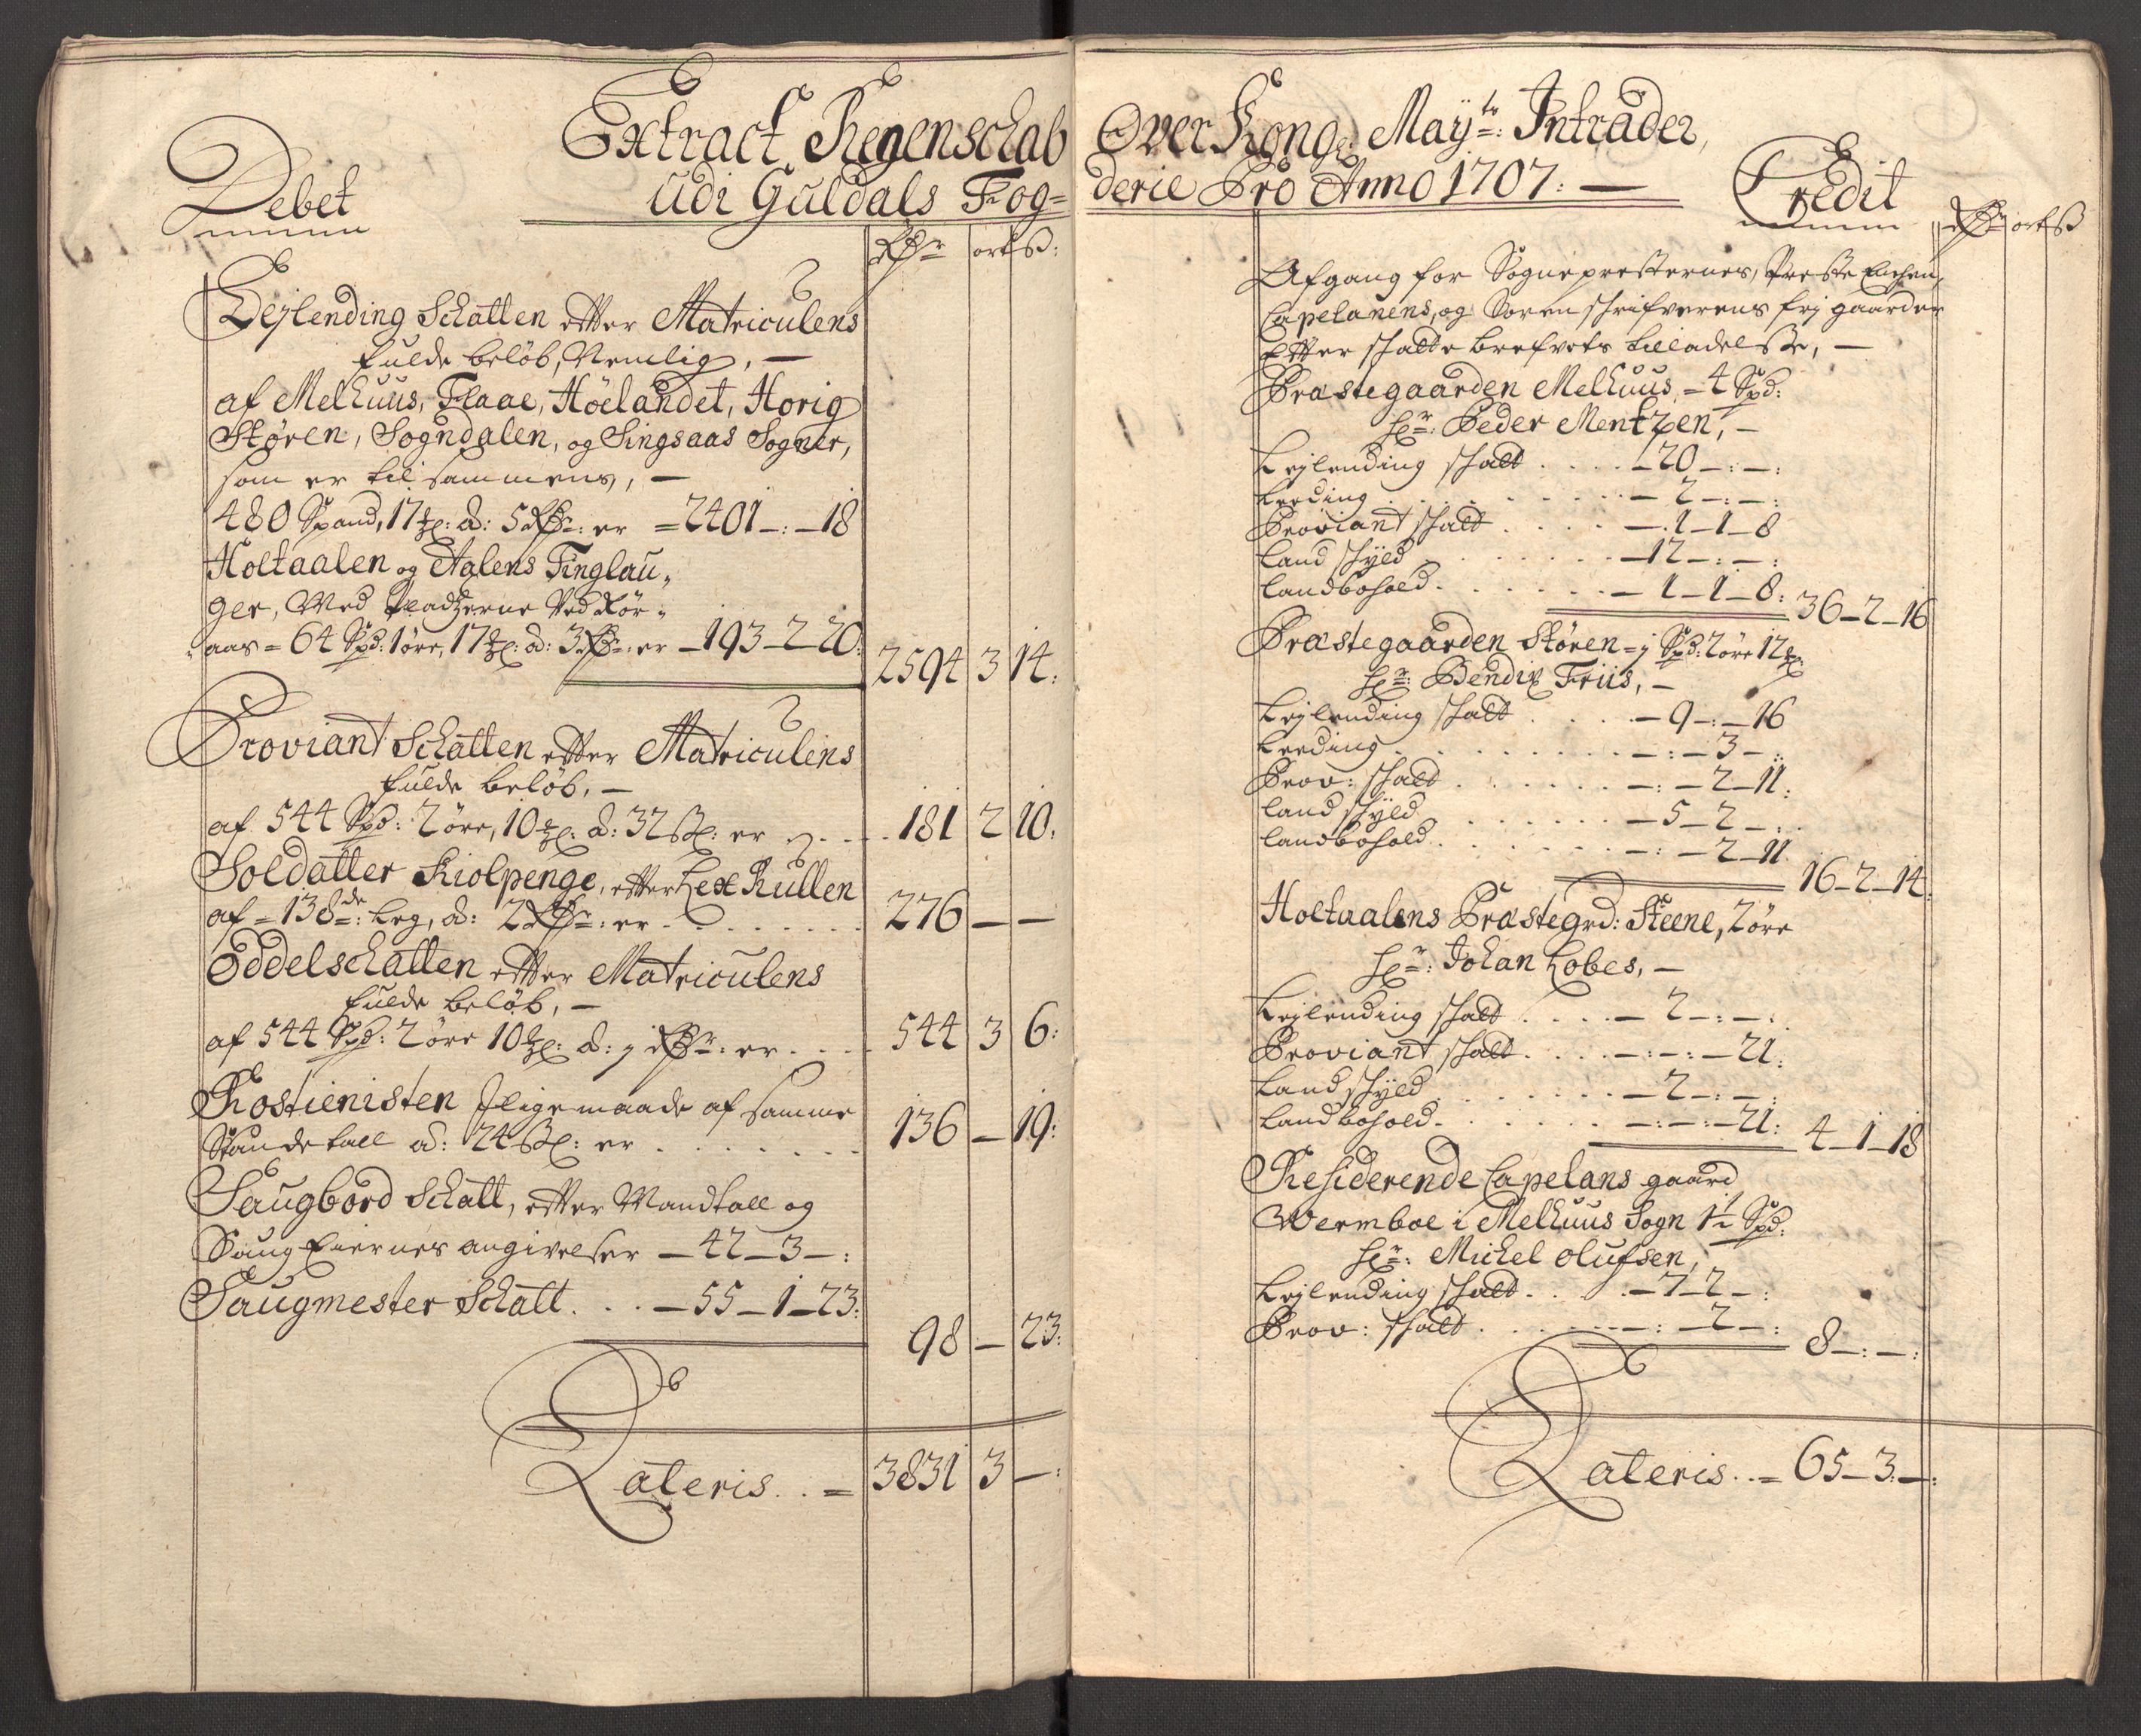 Extract Regenschab Over Kongl: Maÿtz: Intrader,
udi Guldals Fogderie Pro Anno 1707: —
Debet
Rdr ort ß:
Leylending Schatten efter Matriculens
fulde beløb, Nemlig, —
af Melhuus, Flaae, Höelandet, Horig
Støren, Sogndalen, og Singsaas Sogner,
som er til sammens, —
480 Spand, 17 mkl: à: 5 Rdr: er = 2401 – : – 18
Holtaalen og Aalens Tinglau„
ger, Med Pladzerne Ved Rør„
„aas = 64 Spd: 1 øre, 17 mkl: à: 3 Rdr: er – 193 – 2 – 20:
2594 3 14:
Proviant Schatten efter Matriculens
fulde beløb, —
af 544 Spd: 2 øre, 10 mkl: à: 32 ßl: er . . . 181 2 10:
Soldatter Kiolpenge, efter Lex Rullen
af = 138de: Leg, à: 2 Rdr: er . . . . . 276 — —
Oddelschatten efter Matriculens
fulde beløb, —
af 544 Spd: 2 øre 10 mkl: à: j Rdr: er . . . 544 3 6:
Rostienisten Jligemaade af samme
Spandetall à: 24 ßl: er . . . . . . . 136 — 19:
Saugbord Schatt, efter Mandtall og
Saug Eiernes angivelser – 42 – 3 – :
Saugmester Schatt . . . – 55 – 1 – 23:
98 — 23:
Lateris . . = 3831 3 — :
Credit
Rdr ort ß
Afgang for Sognepresternes, Preste Enchen,
Capelanens, og Sorenschrifverens frj gaarder
Efter skatte brefvets tilladelsse, —
Præstegaarden Melhuus, = 4 Spd:
Hr: Peder Mentzen, —
Leylending skatt . . . . – 20 – : – :
Leeding . . . . . . . – 2 – : – :
Proviant skatt . . . . – 1 – 1 – 8
Land skÿld . . . . . . – 12 – : – :
Landbohold . . . . . . – 1 – 1 – 8: 36 – 2 – 16
Præstegaarden Støren = j Spd: 2 øre 12 mkl:
Hr: Bendix Friis, —
Leylending skatt . . . . – 9 – : – 16
Leeding . . . . . . . – : – 3 – :
Prov: skatt . . . . . . – : – 2 – 11:
Land skÿld . . . . . . – 5 – 2 – :
Landbohold . . . . . . – : – 2 – 11. 16 – 2 – 14:
Holtaalens Præstegrd: Steene, 2 øre
Hr: Johan Lobes, —
Leylending skatt . . . . – 2 – : – :
Proviant skatt . . . . – : – : – 21:
Land skÿld . . . . . . – 2 – : – :
Landbohold . . . . . . – : – : – 21: 4 – 1 – 18
Residerende Capelans gaard
Wermboe i Melhuus Sogn 1½ Spd:
Hr: Michel Olufsen,
Leylending skatt . . . – 7 – 2 – :
Prov: skatt . . . . . . – : – 2 – : 8 – : – :
Lateris . . = 65 – 3 – :